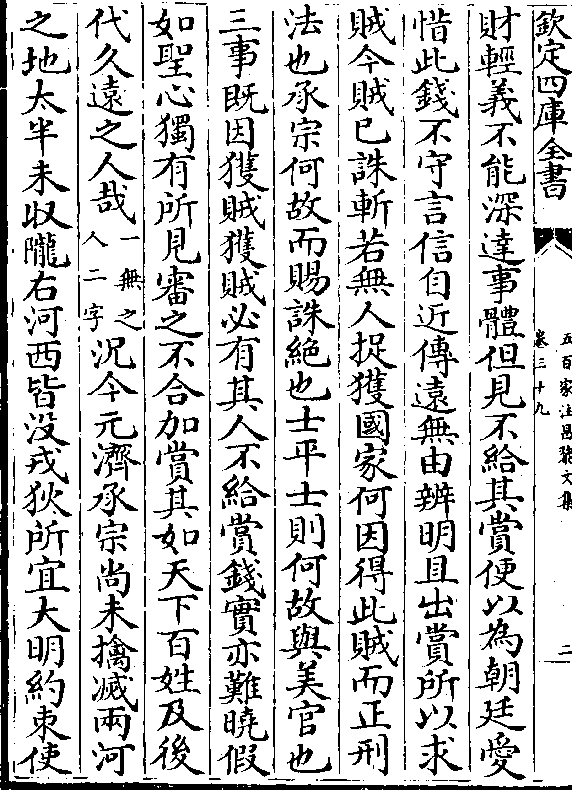 欽定四庫全書
五百家注昌黎文集
卷三十九
二
財輕義不能深達事體但見不給其賞便以為朝廷愛
惜此錢不守言信自近傳遠無由辨明且出賞所以求
賊今賊已誅斬若無人捉獲國家何因得此賊而正刑
法也承宗何故而賜誅絕也士平士則何故與美官也
三事既因獲賊獲賊必有其人不給賞錢實亦難曉假
如聖心獨有所見審之不合加賞其如天下百姓及後
代久遠之人哉一無之人二字況今元濟承宗尚未擒滅兩河
之地太半未収隴右河西皆没戎狄所宜大明約束使